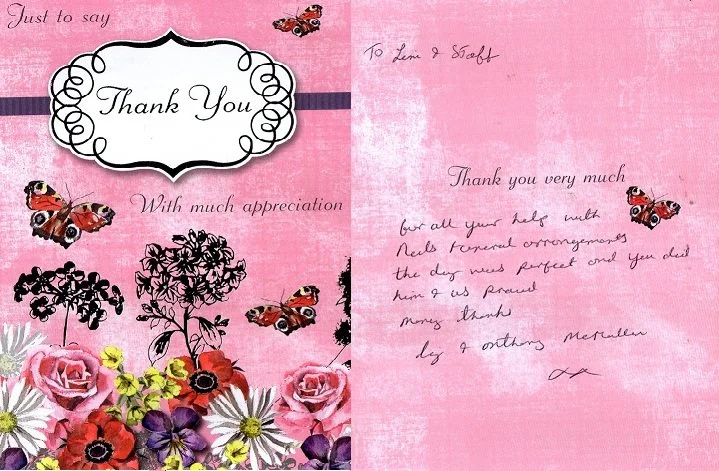 Just to say
Thank You
With much appreciation
To & Staff
Thank you very much
for all your help with
Neils Funeral arrangements
the day was perfect and you did
him & us proud
many thanks
& Anthony
xx